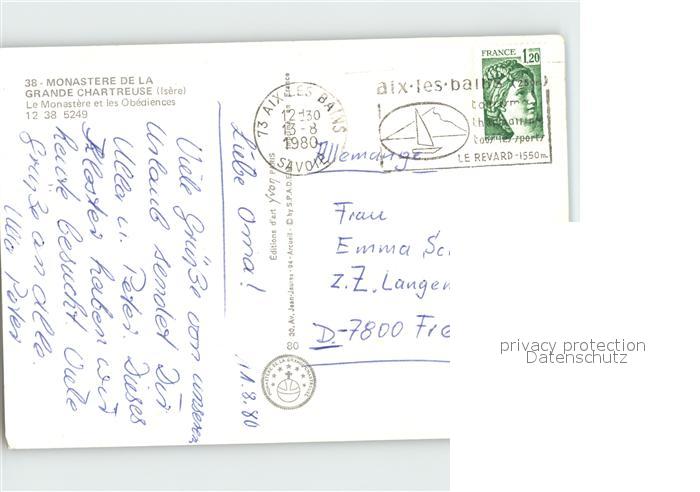 38 - MONASTERE DE LA
GRANDE CHARTREUSE (Isère)
Le Monastère et les Obédiences
12 38 5249
Liebe Oma!
Viele Grüße von unserem
Urlaub sendet Dir
Ulla u. Peter. Dieses
Kloster haben wir
heute besucht. Viele
Grüße an alle.
Ulla Peter
11.8.80
Editions d'art yvon PARIS
30, Av. Jean-Jaurès - 94 - Arcueil - © by S.P.A.D.E.
80
MONASTERE DE LA GRANDE CHARTREUSE
73 AIX-LES-BAINS
12-30
13-8
1980
SAVOIE
aix·les·bains
tous les sports
LE REVARD-1550m
FRANCE 1,20
Allemagne
Frau
Emma Sc
z.Z. Langen
D-7800 Fre
privacy protection
Datenschutz